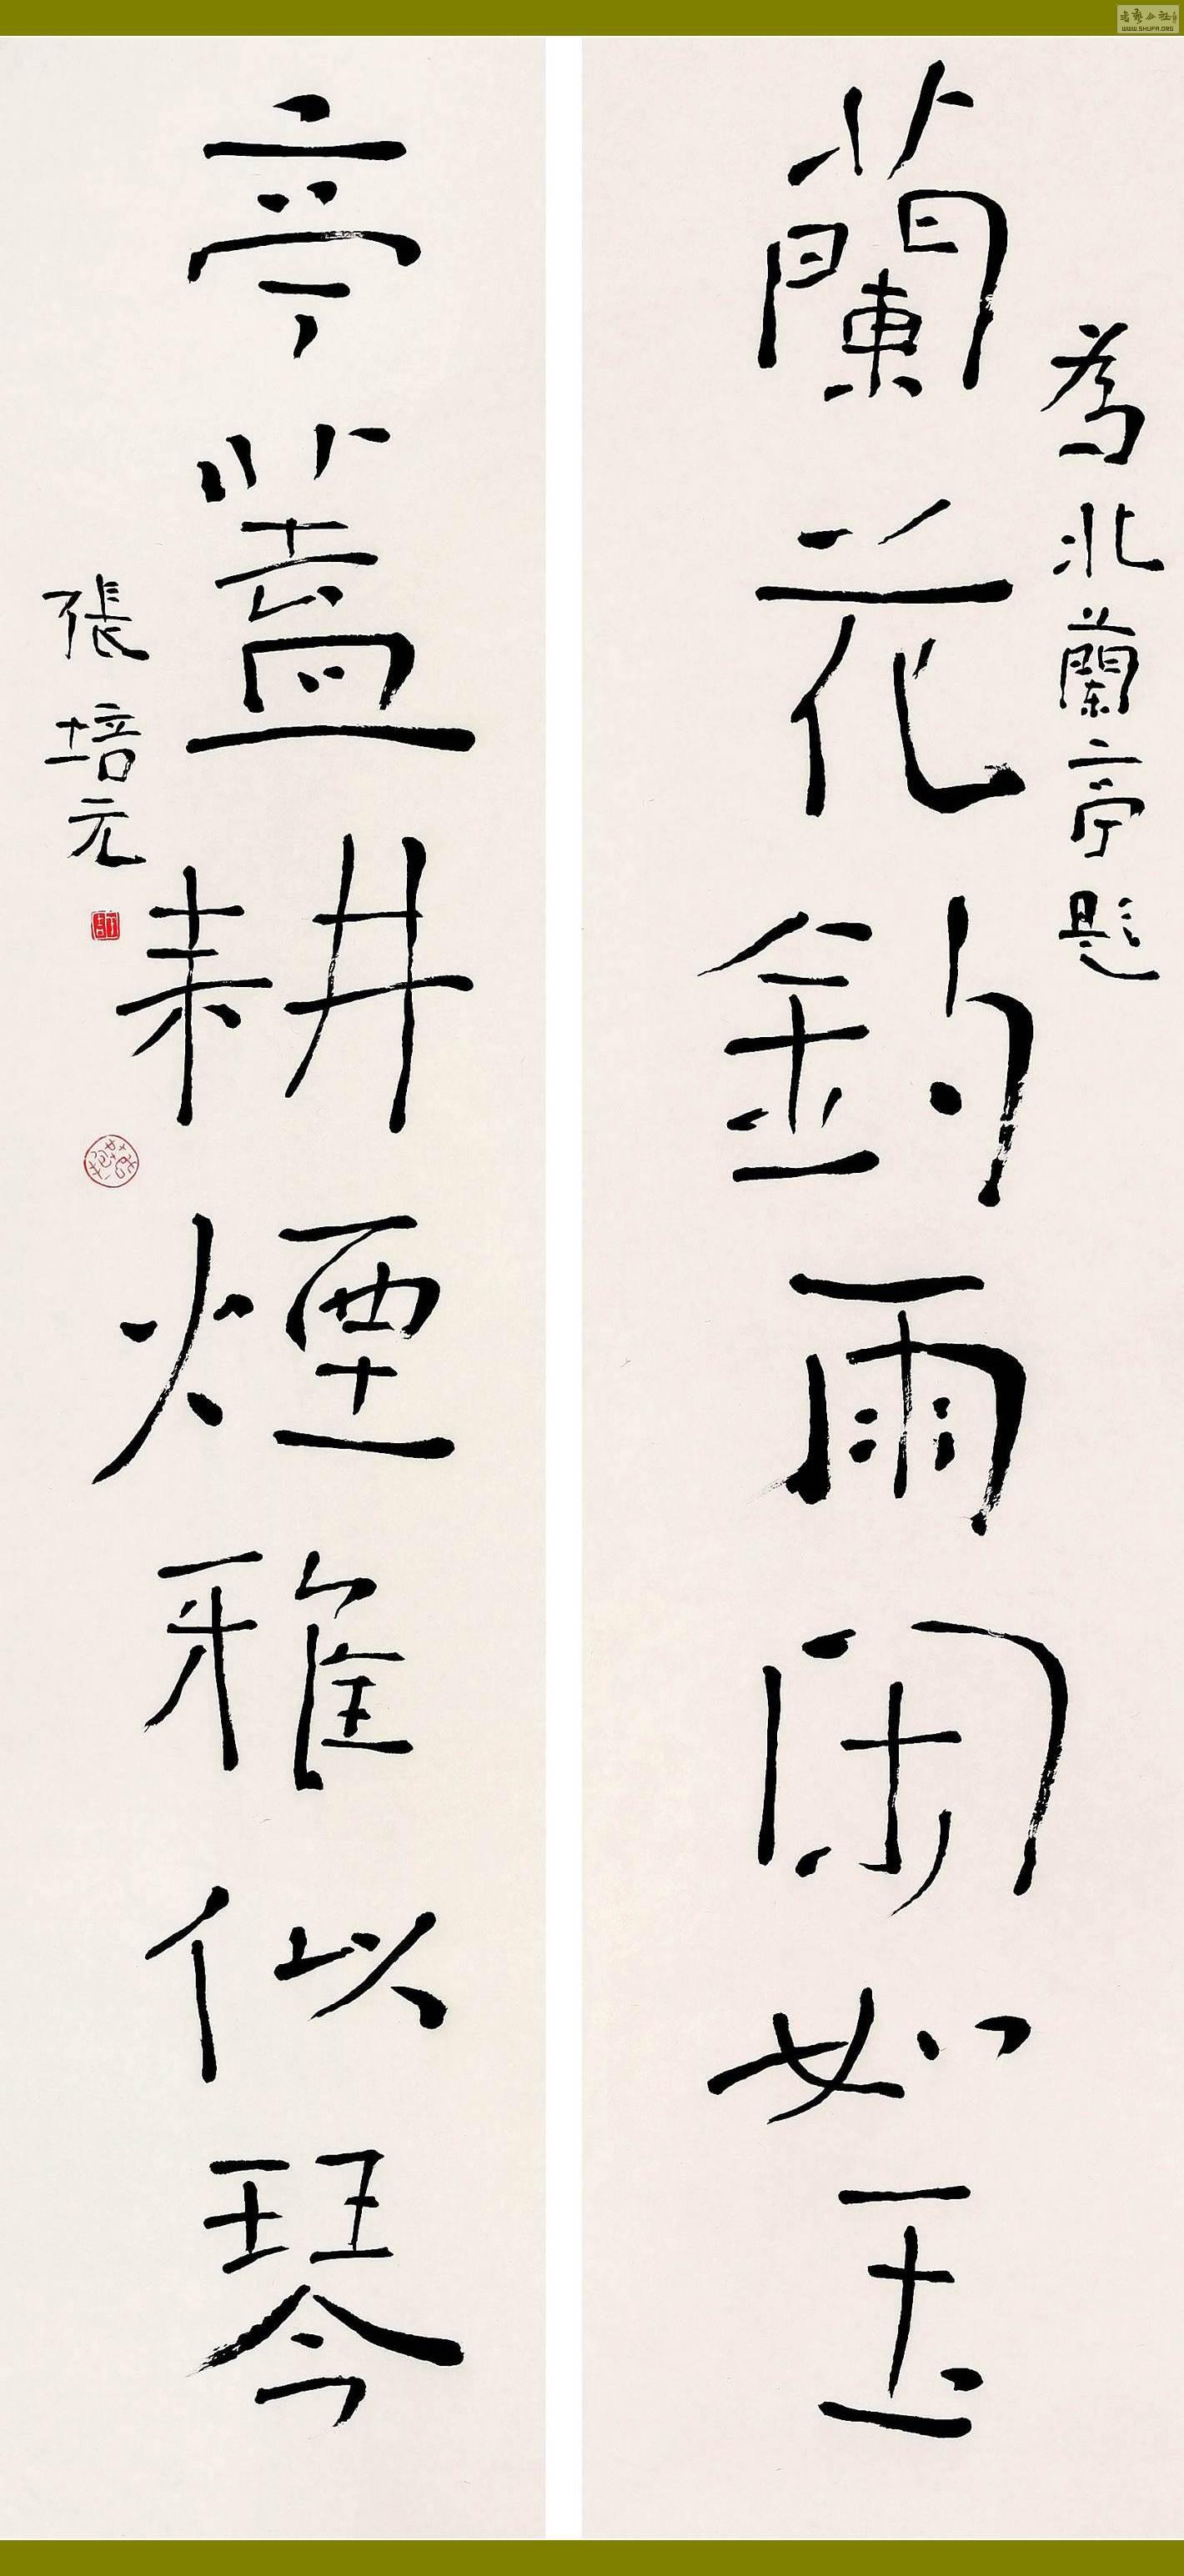 為北蘭亭題
蘭花釣雨閑如玉
亭蓋耕煙雅似琴
張培元
WWW.SHUFA.ORG